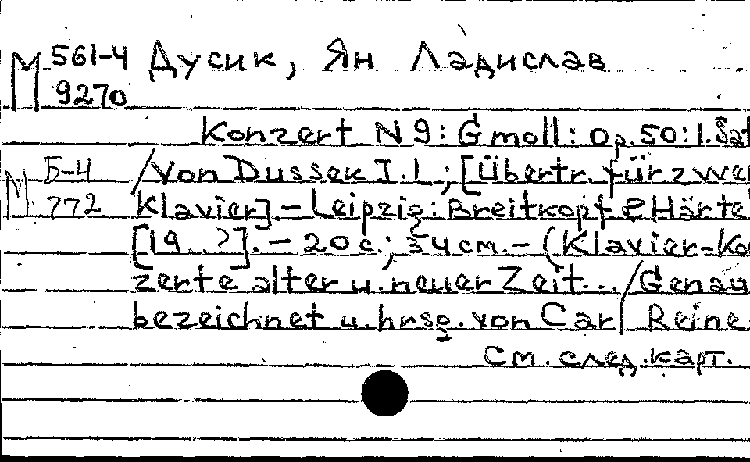 М 561-4 Дусик, Ян Ладислав
9270
Konzert N 9: G moll: Op. 50: 1. Sat
М Б-4 / von Dussek I. L.; [Übertr. für zwei
772 Klavier]. - Leipzig: Breitkopf & Härte
[19..?]. - 20 c.; 34 cm. - (Klavier-Ko
zerte alter u. neuer Zeit... / Genau
bezeichnet u. hrsg. von Carl Reine
См. след. карт.